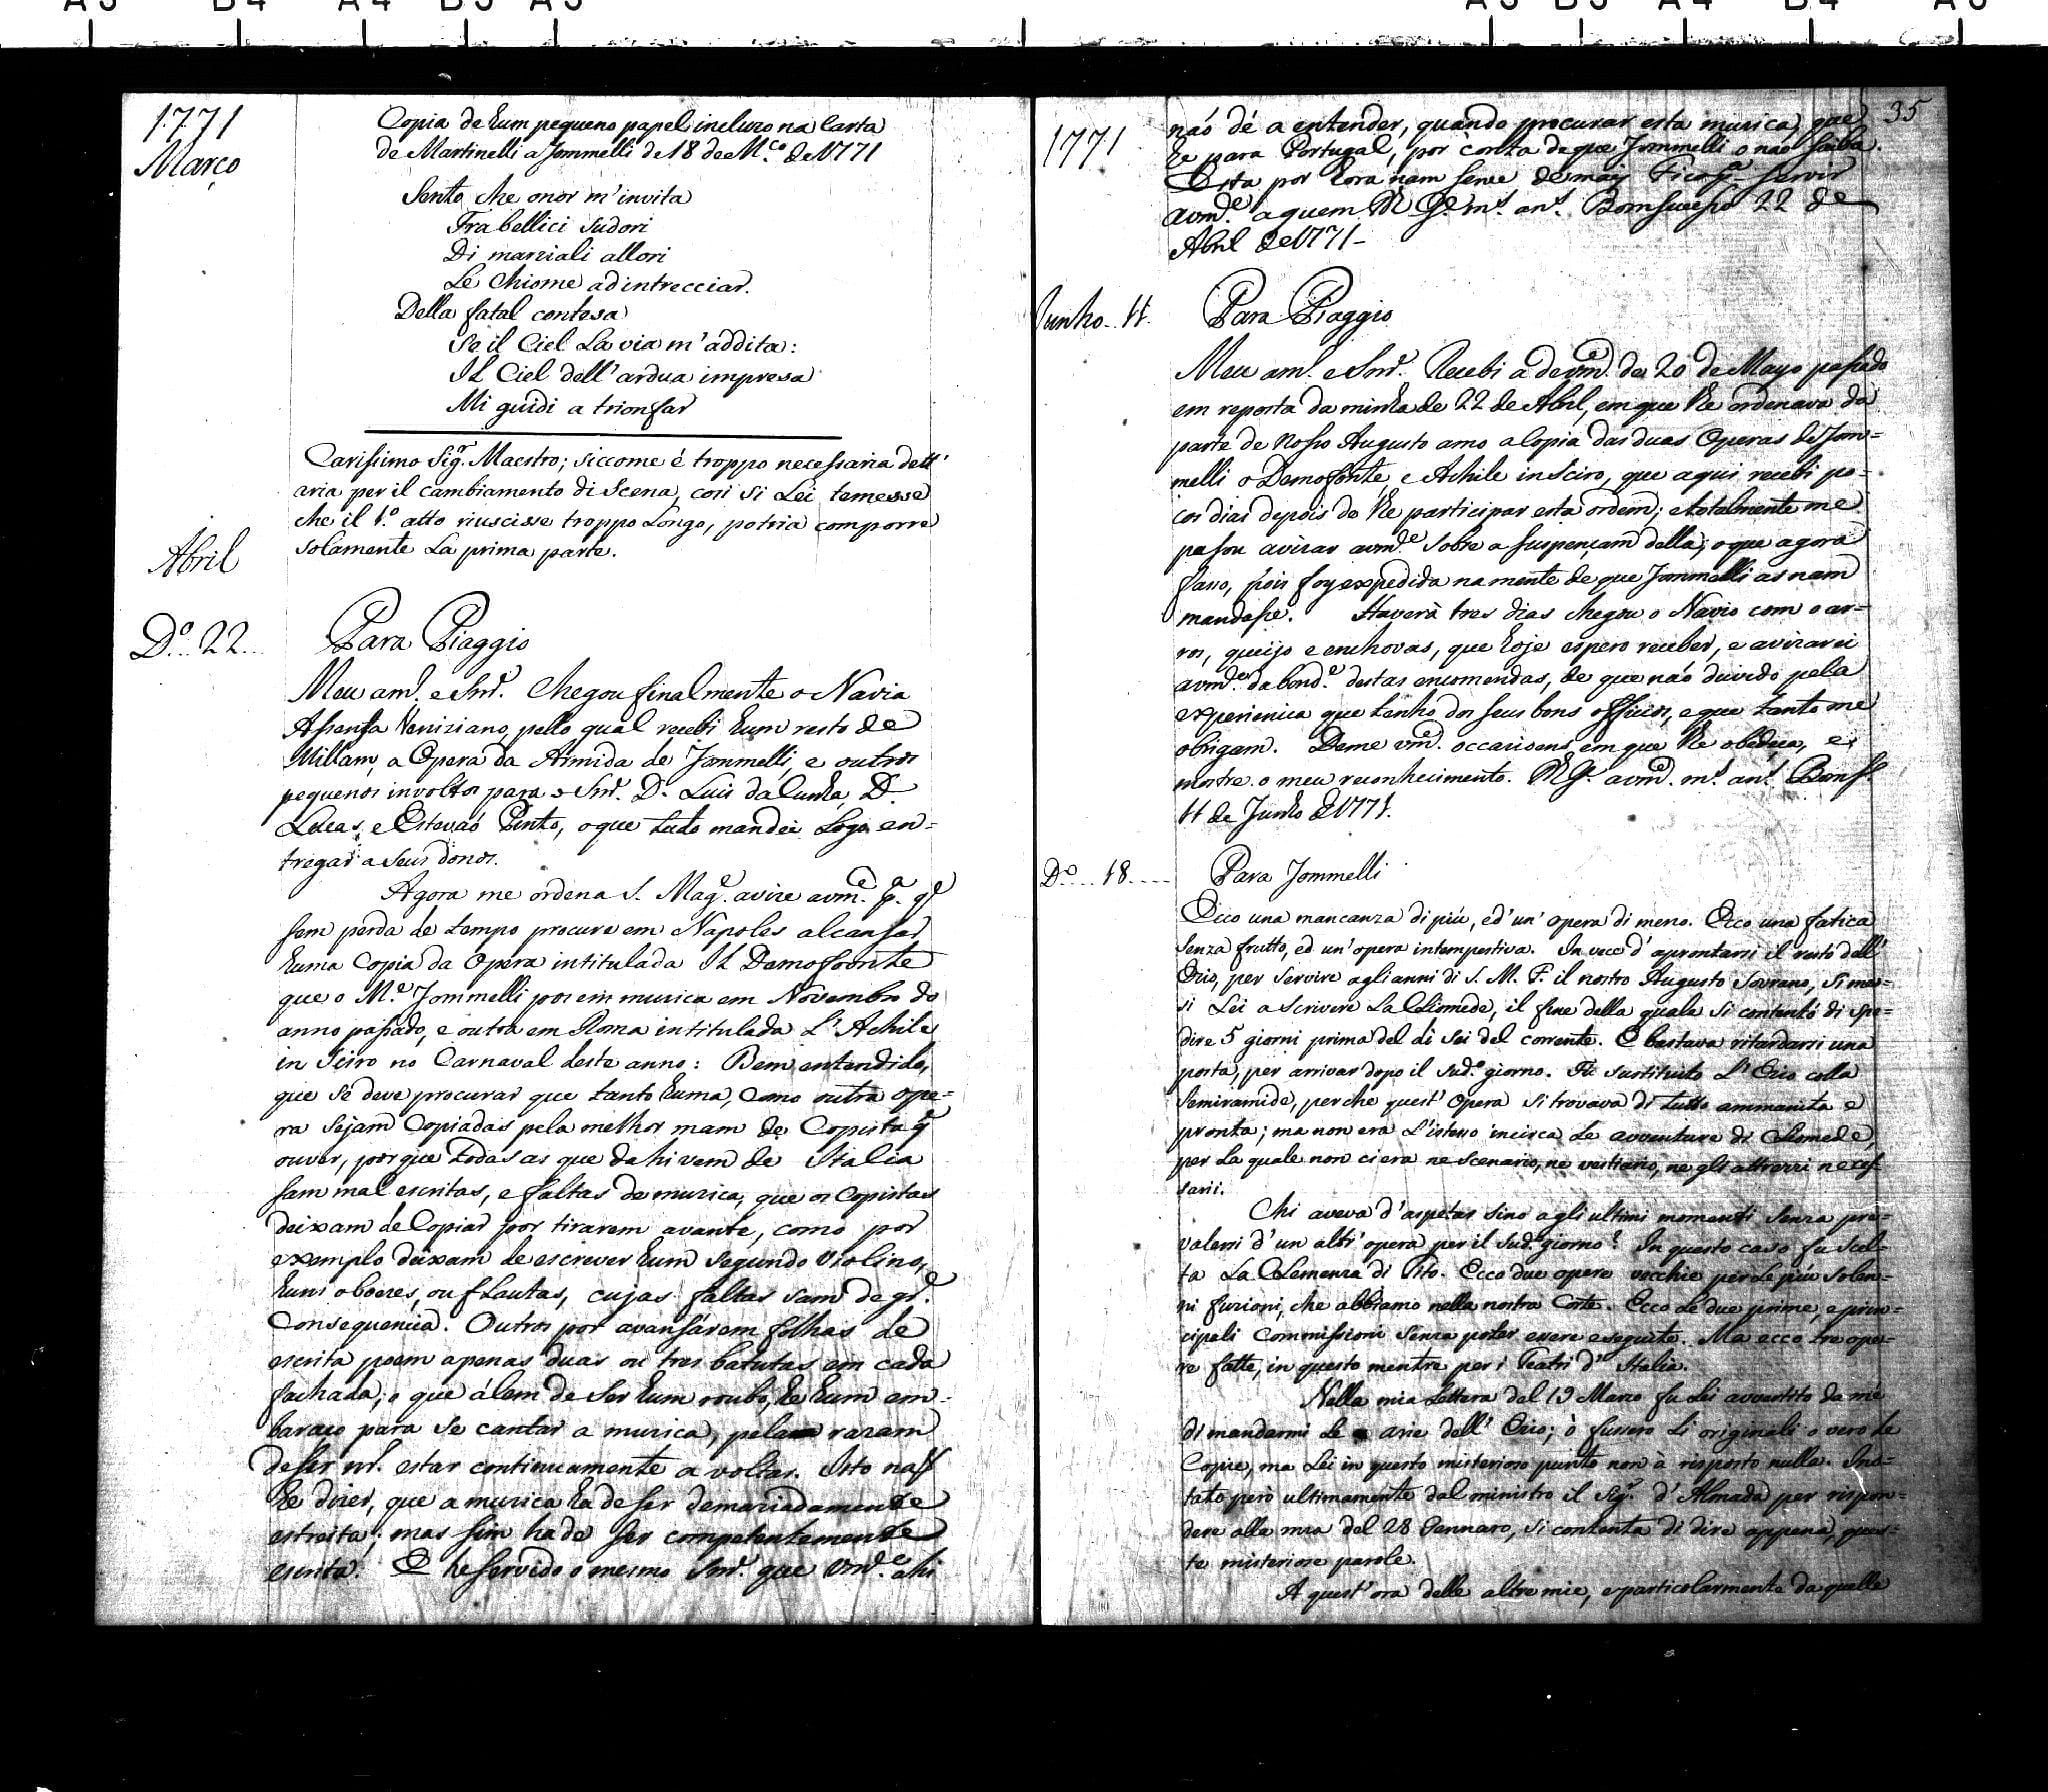 A3 B4 A4 B5 A5
A5 B5 A4 B4 A3
1771
Março
Copia de hum pequeno papel incluzo na Carta
de Martinelli a Jommelli de 18 de M.ço de 1771
Sento che onor m'invita
Fra bellici sudori
Di marziali allori
Le Chiome ad intrecciar.
Della fatal contesa
Se il Ciel La via m'addita:
Il Ciel dell'ardua impresa
Mi guidi a trionfar
Carissimo Sig.r Maestro; siccome é troppo necessaria dell'
aria per il cambiamento di Scena, cosi si Lei temesse
che il 1.o atto riuscisse troppo Longo, potria comporre
solamente La prima parte.
Abril
D.o 22
Para Piaggio
Meu am.o e Snr. Chegou finalmente o Navia
Assensa Veniziano, pello qual recebi hum resto de
Millam, a Opera da Armida de Jommelli, e outros
pequenos involtos para o Snr. D. Luis da Cunha, D.
Lucas, e Estevaó Pinto, o que tudo mandei Logo en=
tregar a seus donos.
Agora me ordena S. Mag.e avize avm.ce p.a q.e
sem perda de tempo procure em Napoles alcansar
huma Copia da Opera intitulada Il Demofoonte
que o M.e Jommelli pos em muzica em Novembro do
anno passado, e outra em Roma intitulada L'Achile
in Sciro no Carnaval deste anno: Bem entendido,
que se deve procurar que tanto huma, como outra ope=
ra sejam Copiadas pela melhor mam de Copista q.e
ouver, porque todas as que dahi vem de Italia
sam mal escritas, e faltas de muzica, que os Copistas
deixam de Copiar por tirarem avante, como por
exemplo deixam de escrever hum segundo violino,
huns oboeres, ou flautas, cujas faltas sam de gr.de
Consequencia. Outros por avansárem folhas de
escrita poem apenas duas ou tres batutas em cada
fachada; o que álem de ser hum roubo, he hum em=
baraço para se cantar a muzica, pela razam
de ser m.r estar continuamente a voltar. Isto naó
he dizer, que a muzica ha de ser demaziadamente
estreita; mas sim ha de ser competentemente
escrita. E he servido o mesmo Snr. que vm.ce ahi
35
1771
naó dé a entender, quando procurar esta muzica, que
he para Portugal, por conta de que Jommelli o naó saiba.
Esta por hora nam serve de mais Fico p.a servir
avm.ce aquem D G.e m.s an.s Bomsucesso 22 de
Abril de 1771-
Junho 11
Para Piaggio
Meu am.o e Snr. Recebi a de vm.ce de 20 de Mayo passado
em reposta da minha de 22 de Abril, em que lhe ordenava da
parte de Nosso Augusto amo a Copia das duas Operas de Jom=
melli o Demofonte, e Achile in Sciro, que aqui recebi po=
cos dias depois de lhe participar esta ordem; e totalmente me
pasou avizar avm.ce sobre a suspençam della; o que agora
faso, pois foy expedida na mente de que Jommelli as nam
mandasse. Haverà tres dias chegou o Navio com o ar=
ros, queijo e enchovas, que hoje espero receber, e avizarei
avm.ce da bond.e destas encomendas, de que naó duvido pela
experiencia que tenho dos seus bons officios, e que tanto me
obrigam. Deme vm.ce occasioens em que lhe obedeça, e
mostre o meu reconhecimento. D G.e avm.ce m.s an.s Boms.o
11 de Junho d 1771.
D.o 18
Para Jommelli
Ecco una mancanza di più, ed'un'opera di meno. Ecco una fatica
senza frutto, ed un'opera intempestiva. In vece d'aprontarsi il resto dell'
Ezio, per servire agli anni di S. M. F. il nostro Augusto Sovrano, si mes=
si Lei a scrivere La Cliomede, il fine della quale si contentó di spe=
dire 5 giorni prima del di sei del corrente. E bastava ritardarsi una
posta, per arrivar dopo il sud.o giorno. Fù sustituito L'Ezio colla
Semiramide, perche quest'Opera si trovava di tutto ammanita e
pronta; ma non era L'istesso incirca Le avventure di Cliomede,
per La quale non ci era ne scenario, ne vestiario, ne gli attrezzi neces=
sarii.
Chi aveva d'aspetar sino agli ultimi momenti senza pre=
valersi d'un altr'opera per il sud.o giorno? In questo caso fu scel=
ta La Clemenza di Tito. Ecco due opere vecchie per Le più solen=
ni funzioni, che abbiamo nella nostra Corte. Ecco Le due prime, e prin=
cipali Commissioni senza poter essere eseguite. Ma ecco tre ope=
re fatte, in questo mentre per i Teatri d'Italia.
Nella mia Lettera del 19 Marzo fu Lei avvertito da mé
di mandarmi Le arie dell'Ezio; ò fussero Li originali o vero Le
Copie, ma Lei in questo misterioso punto non à risposto nulla. Inci=
tato però ultimamente dal ministro il Sig.r d'Almada per rispon=
dere alle mia del 28 Gennaro, si contenta di dire appena, ques=
te misteriose parole.
A quest'ora delle altre mie, e particolarmente da quelle